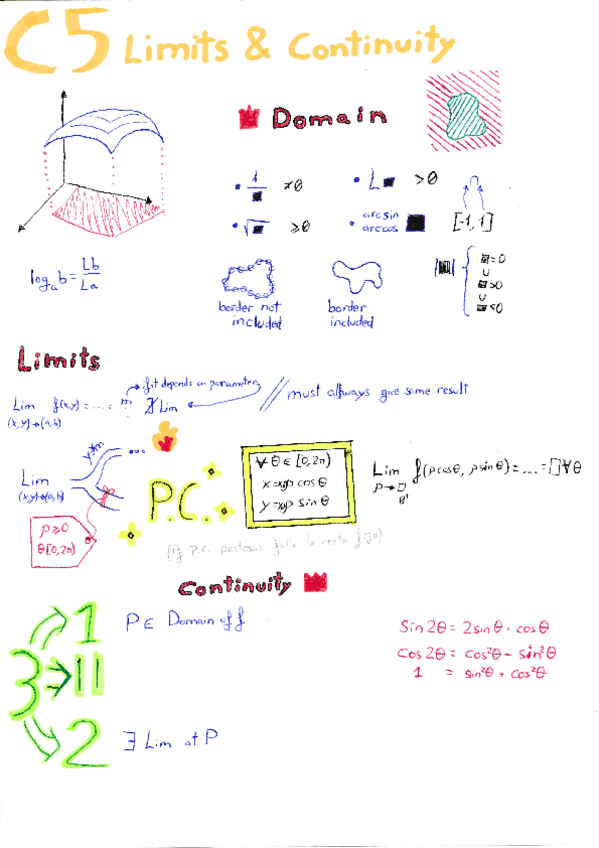 C5 Limits & Continuity
Domain
• 1/■ ≠0
• L■ >0
• √■ ≥0
• arcsin
arccos ■ [-1, 1]
|■| { ■=0
U
■>0
U
■<0
log_a b = Lb/La
border not
included
border
included
Limits
if it depends on parameter
Lim f(x,y) = ...: m ∄ Lim // must always give same result
(x,y)→(a,b)
Lim
(x,y)→(a,b)
...
P.C.
∀ θ ∈ [0,2π)
x = x₀ρ cos θ
y = y₀ρ sin θ
Lim f(ρcosθ, ρsinθ) = .... = □∀θ
ρ→□
ρ≥0
θ[0,2π)
(if p.c.
Continuity
3
1 P ∈ Domain of f
11
2 ∃ Lim at P
Sin 2θ = 2sinθ · cosθ
Cos 2θ = cos²θ - sin²θ
1 = sin²θ + cos²θ